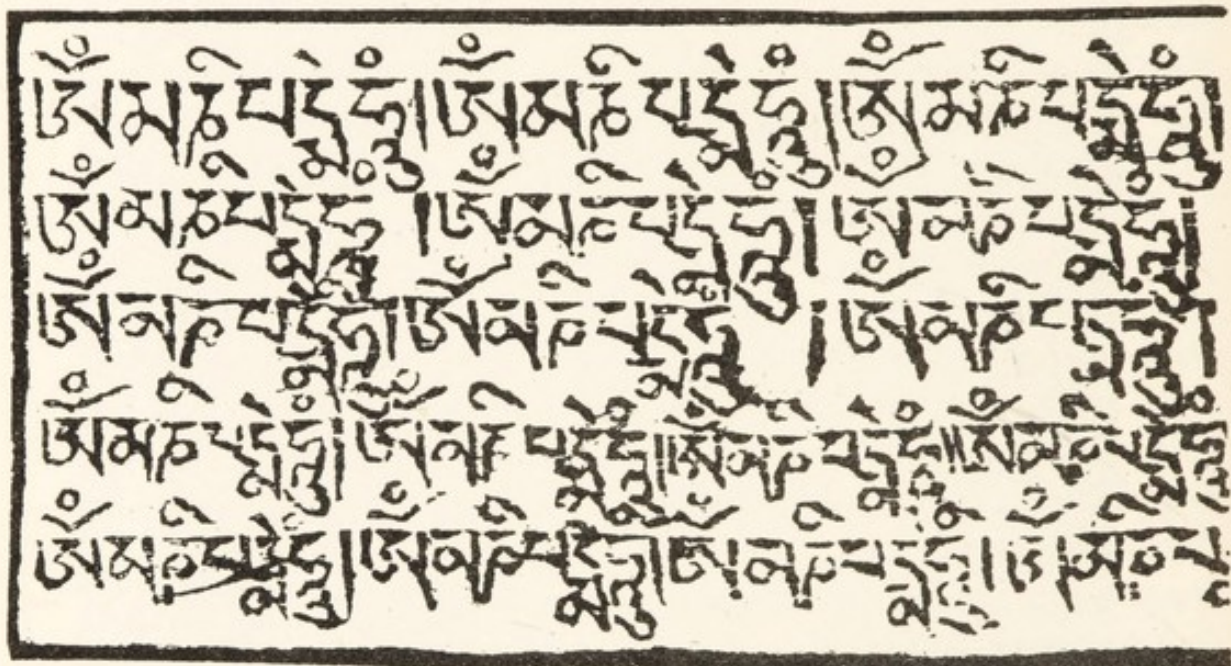 ཨོཾམཎིཔདྨེཧཱུཾ།ཨོཾམཎིཔདྨེཧཱུཾ།ཨོཾམཎིཔདྨེཧཱུཾ།
ཨོཾམཎིཔདྨེཧཱུཾ།ཨོཾམཎིཔདྨེཧཱུཾ།ཨོཾམཎིཔདྨེཧཱུཾ།
ཨོཾམཎིཔདྨེཧཱུཾ།ཨོཾམཎིཔདྨེཧཱུཾ།ཨོཾམཎིཔདྨེཧཱུཾ།
ཨོཾམཎིཔདྨེཧཱུཾ།ཨོཾམཎིཔདྨེཧཱུཾ།།ཨོཾམཎིཔདྨེཧཱུཾ།།ཨོཾམཎིཔདྨེཧཱུཾ
ཨོཾམཎིཔདྨེཧཱུཾ།ཨོཾམཎིཔདྨེཧཱུཾ།ཨོཾམཎིཔདྨེཧཱུཾ།ཨོཾམཎིཔ